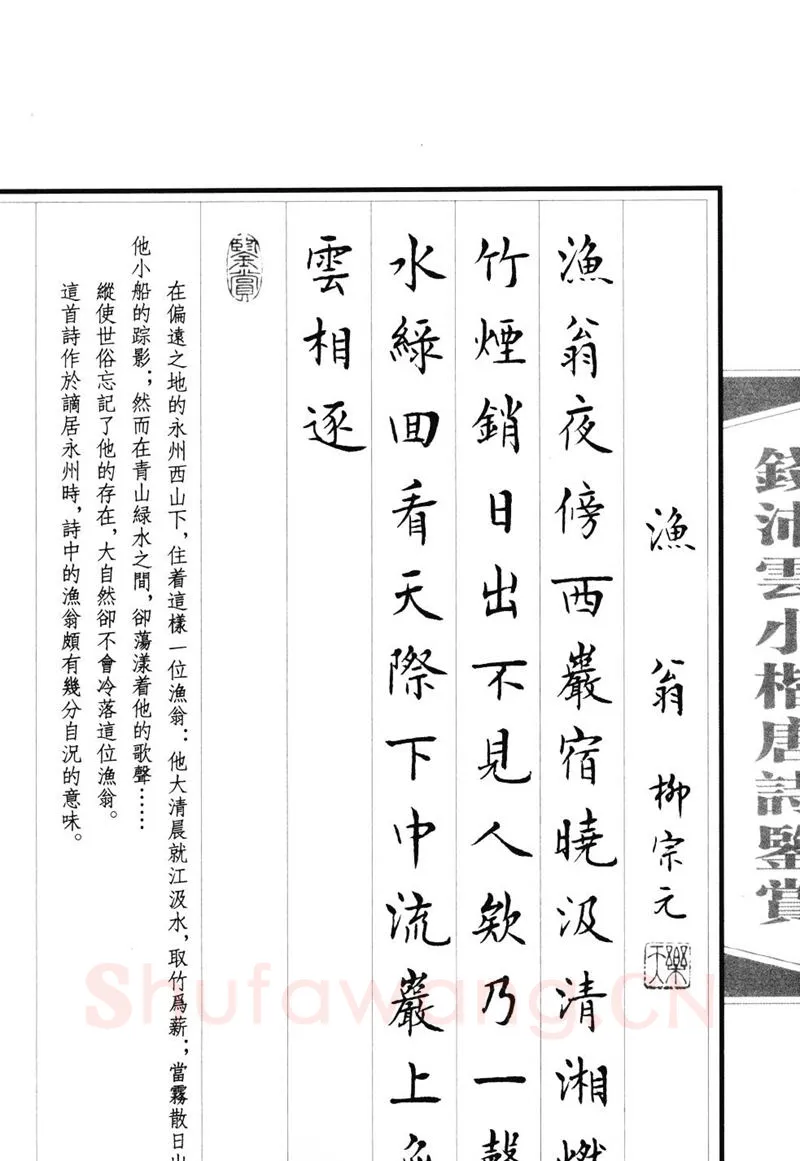 錢沛雲小楷唐詩鑒賞
漁翁 柳宗元
樂天
漁翁夜傍西巖宿曉汲清湘燃
竹煙銷日出不見人欸乃一聲
水綠回看天際下中流巖上
雲相逐
鑒賞
在偏遠之地的永州西山下，住着這樣一位漁翁：他大清晨就江汲水，取竹爲薪；當霧散日出
他小船的踪影；然而在青山綠水之間，卻蕩漾着他的歌聲……
縱使世俗忘記了他的存在，大自然卻不會冷落這位漁翁。
這首詩作於謫居永州時，詩中的漁翁頗有幾分自況的意味。
Shufawang.CN